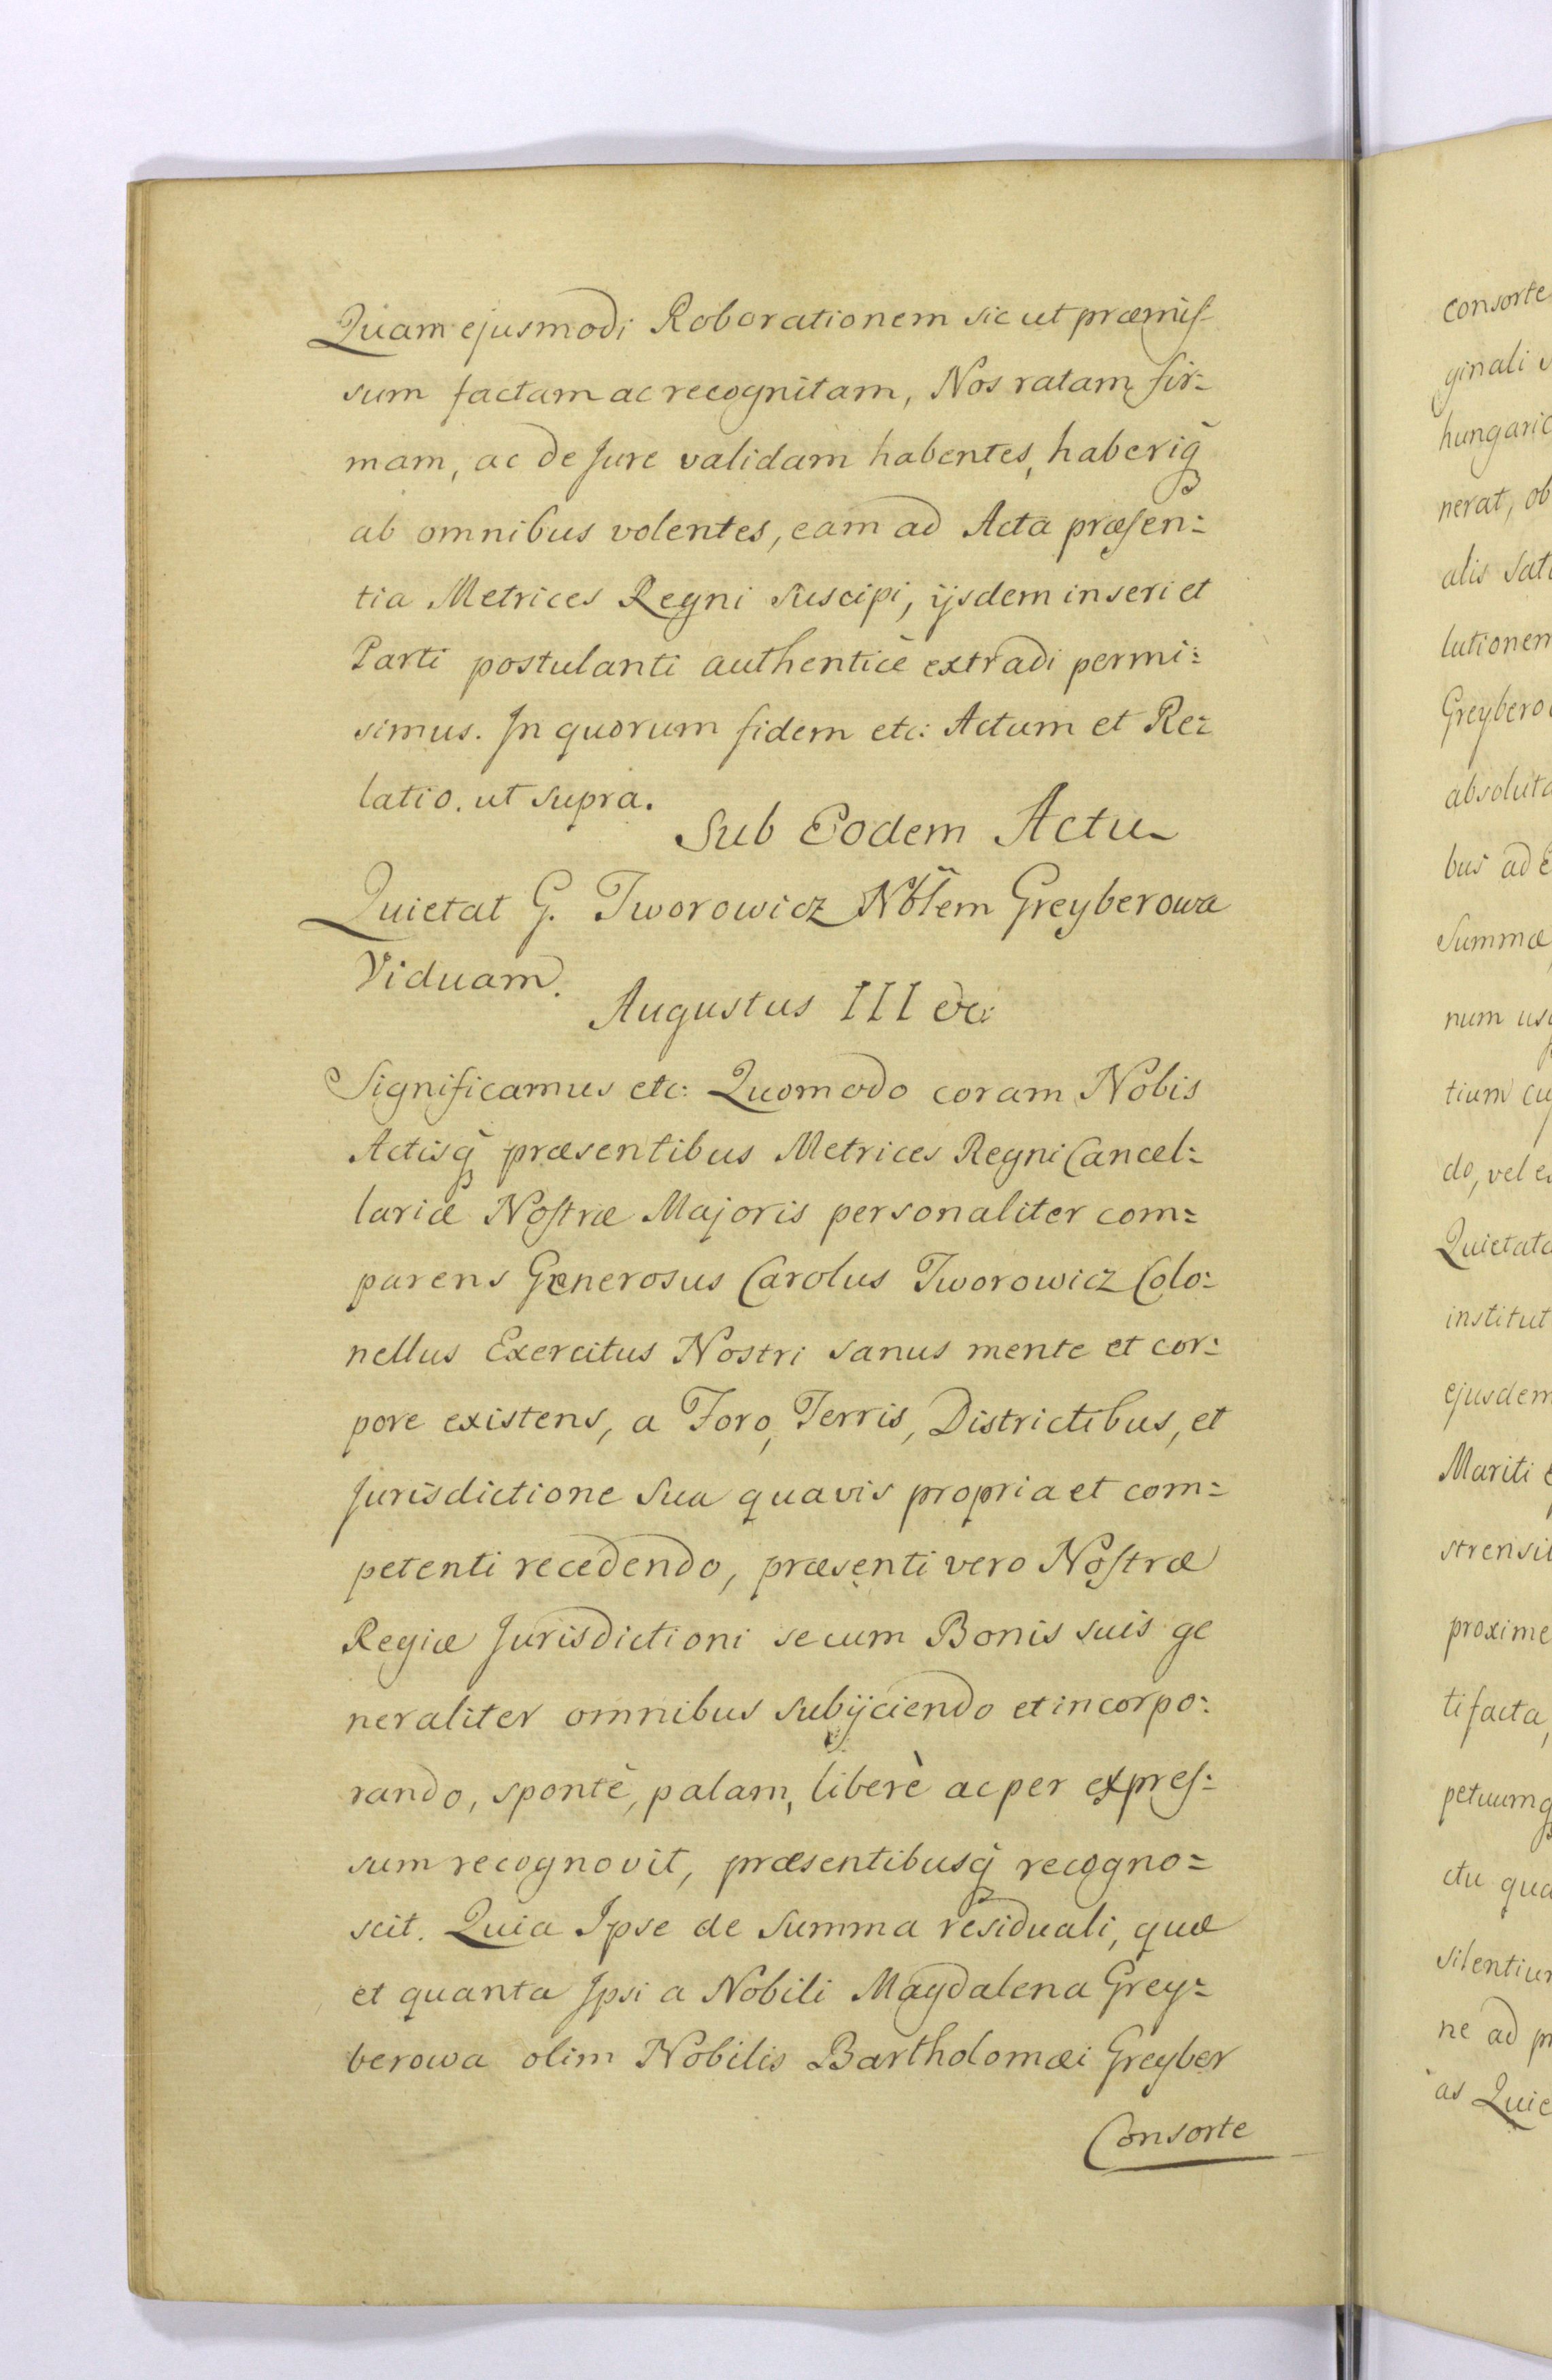 Quam ejusmodi Roborationem sic ut præmis-
sum factam ac recognitam, Nos ratam fir=
mam, ac de Jure validam habentes, haberiq̃
ab omnibus volentes, eam ad Acta præsen=
tia Metrices Regni suscipi, ijsdem inseri et
Parti postulanti authenticè extradi permi=
simus. In quorum fidem etc: Actum et Re=
latio. ut supra.
Sub Eodem Actu
Quietat G. Tworowicz Nõblem Greyberowa
Viduam.
Augustus III etc:
Significamus etc: Quomodo coram Nobis
Actisq̃ præsentibus Metrices Regni Cancel=
lariæ Nostræ Majoris personaliter com=
parens Generosus Carolus Tworowicz Colo=
nellus Exercitus Nostri sanus mente et cor=
pore existens, a Foro, Terris, Districtibus, et
Jurisdictione Sua quavis propria et com=
petenti recedendo, præsenti vero Nostræ
Regiæ Jurisdictioni se cum Bonis suis ge
neraliter omnibus subijciendo et incorpo=
rando, spontè, palam, liberè ac per expres=
sum recognovit, præsentibusq̃ recogno=
scit. Quia Ipse de Summa residuali, quæ
et quanta Ipsi a Nobili Magdalena Grey=
berowa olim Nobilis Bartholomæi Greyber
Consorte
consorte
ginali
hungaric
nerat, ob
alis sati
lutionem
Greybero
absoluta
bus ad
Summæ
num
tium
do, vel
Quietat
institut
ejusdem
Mariti
strensi
proxime
ti facta,
petuumq
ctu qua
silentiu
ne ad
as Quie